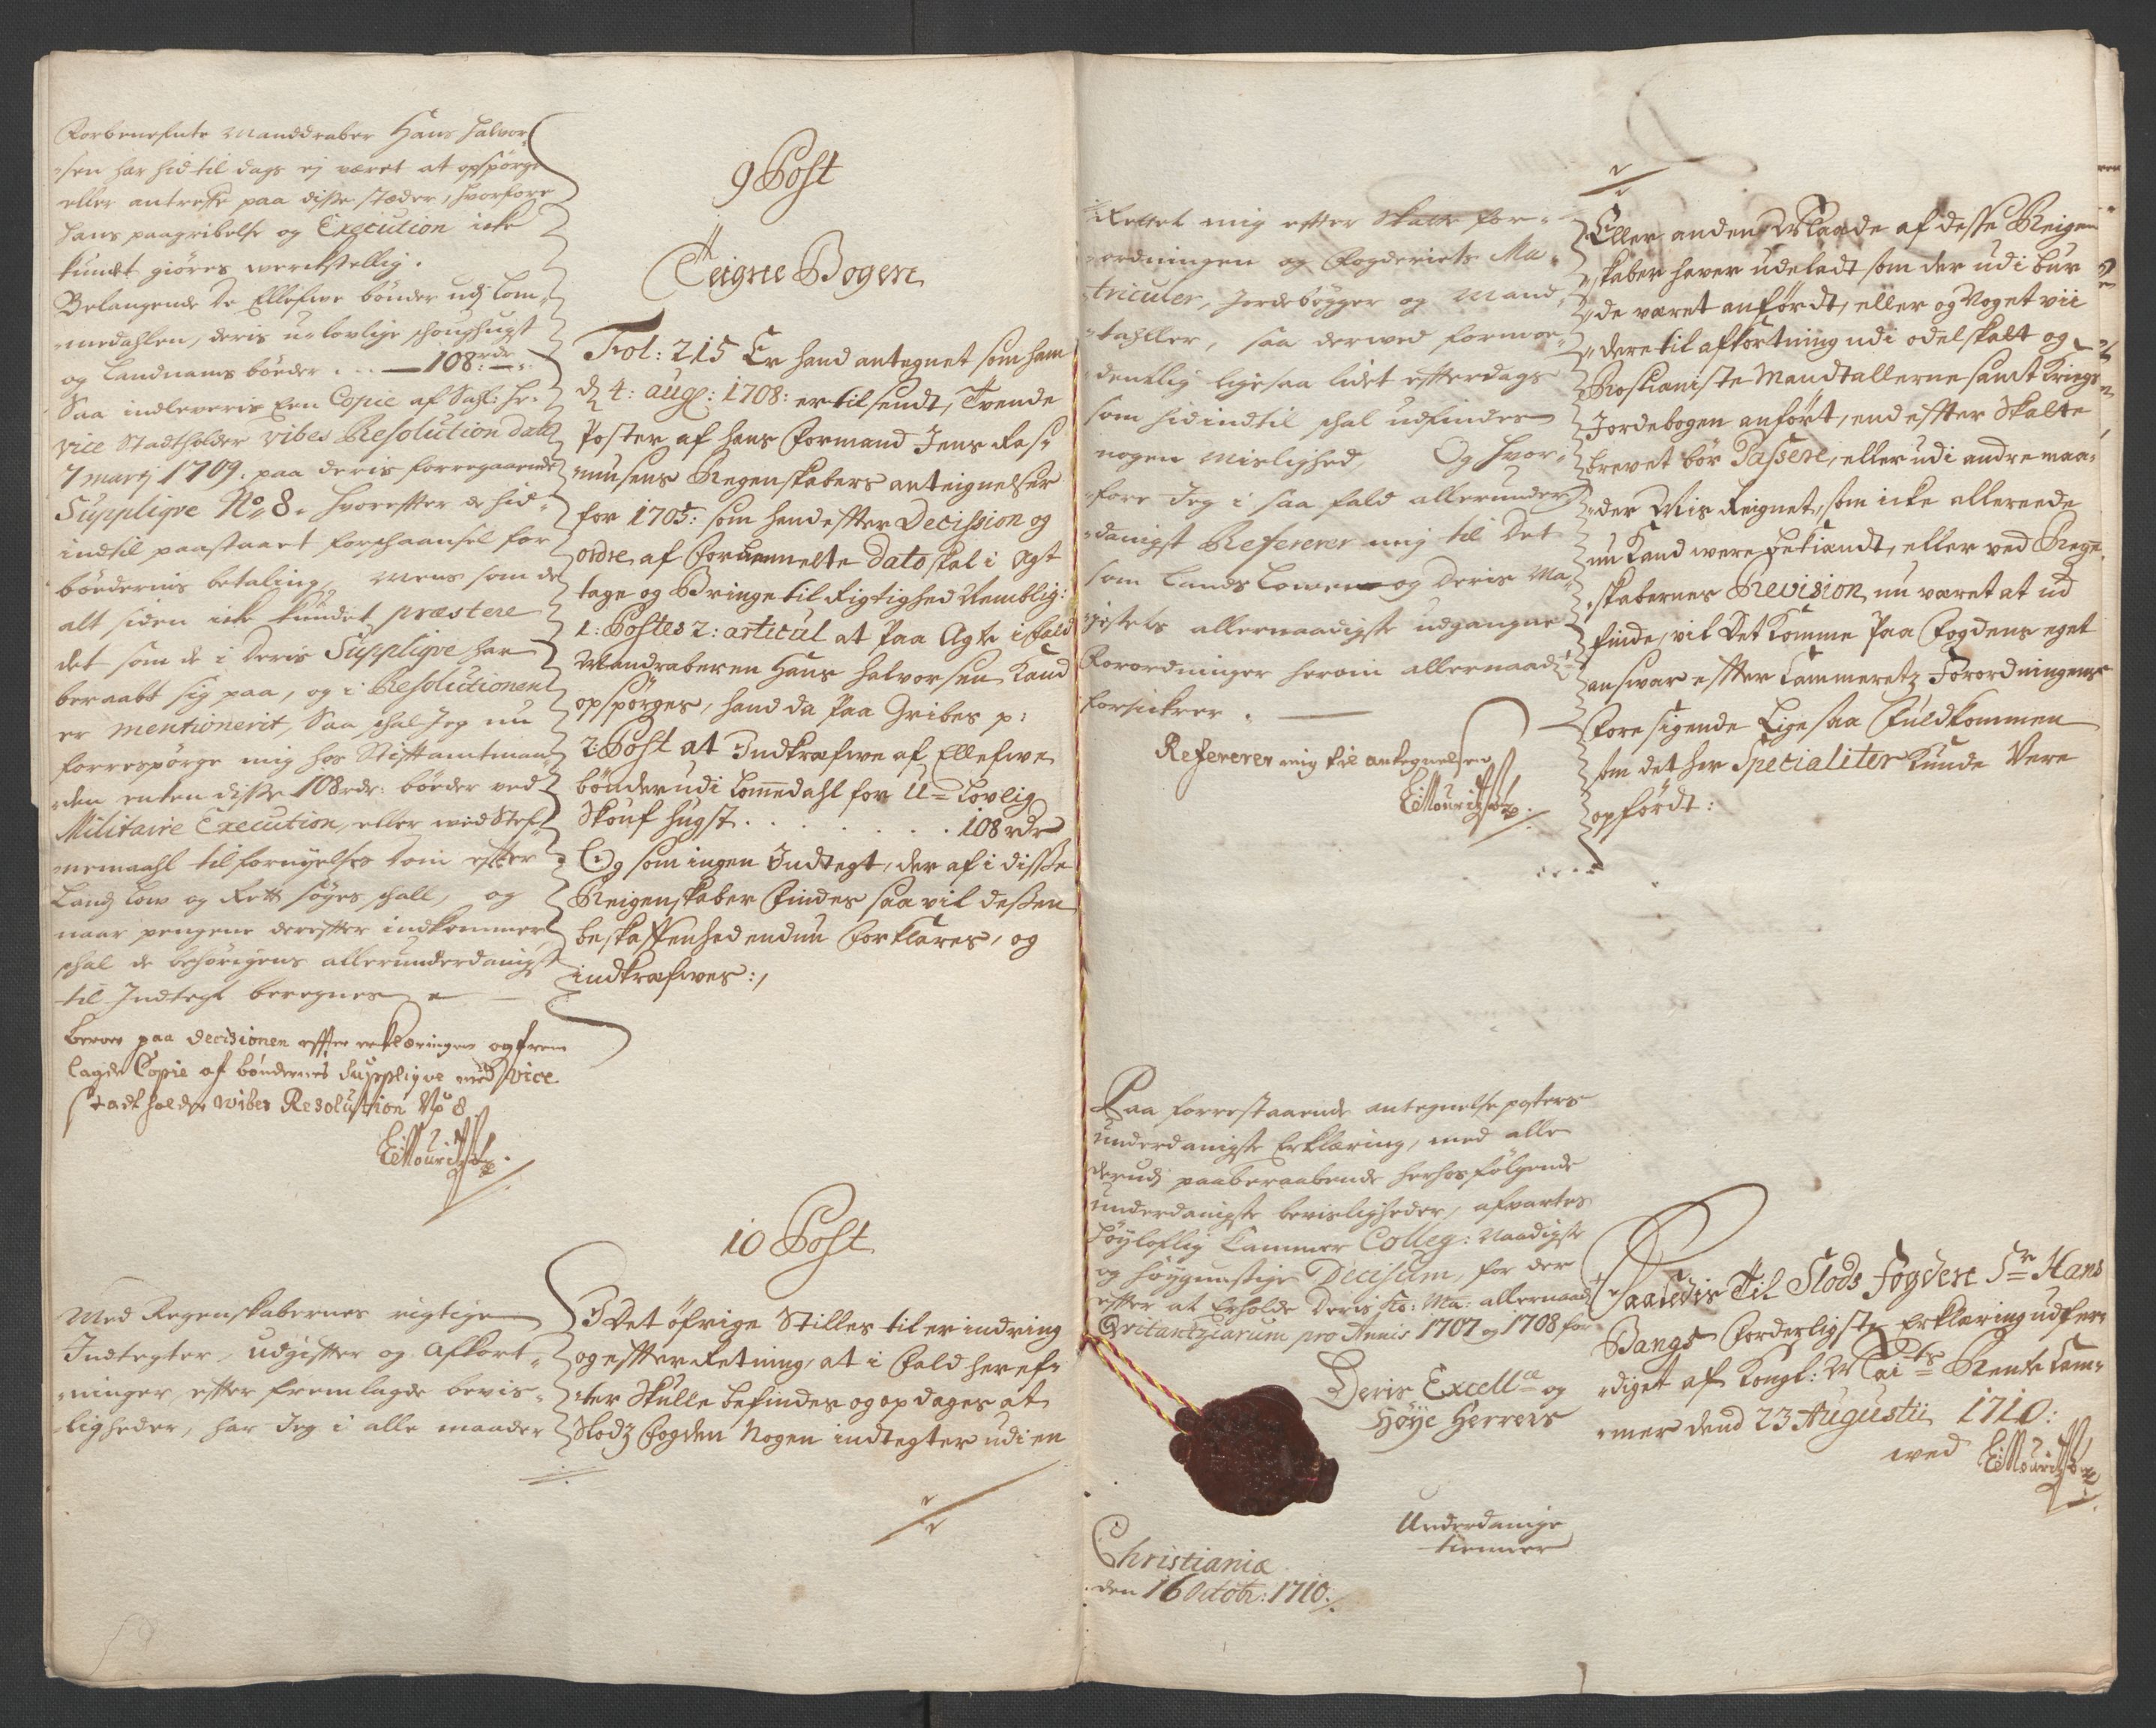 Forbenefnte Manddraber Hans Halvor-
-sen har hid til dags ej været at opspørge
eller antreffe paa disse stæder, hvorfore
hans paagribelse og Execution icke
kundet giøres werckstellig.
Belangende de Ellefwe bønder udj Lom-
-medahlen, deris u-lovlige schoughugst
og Landnams bøeder . . . — 108 rdr —:
Saa indleveris Een Copie af Sahl: Hr.
Vice Stadtholder Vibes Resolution dat:
7 Martj 1709. paa deris forregaaende
Suppliqve No 8. hvorefter de hid-
indtil paastaaet forschaansel for
bøedernis betaling, Mens som de
alt siden icke kundet præstere
det som de i deris Suppliqve har
beraabt sig paa, og i Resolutionen
er mentionerit, Saa schal Jeg nu
forrespørge mig hos Stiftamtman-
-den enten disse 108 rdr: bøeder ved
Militaire Execution, eller wed Stef-
-nemaahl til fornyelses Dom efter
Landz Low og Rett søges schall, og
naar pengene derefter indkommer
schal de behørigens allerunderdanigst
til Indtegt beregnes
beroer paa Decisionen effter erklæringen og frem
lagde Copie af bøndernes Suppliqve med Vice
Stadtholder Wibes Resolution No 8
EMouritzøn
Med Regenskabernes rigtige
Indtegter, udgifter og Afkort-
-ninger, efter fremlagde bevis-
-ligheder, har Jeg i alle maader
9 Post
Til
Teigne Bogen
Fol: 215 Er hand antegnet som ham
d 4: aug: 1708: er tilsendt, Tvende
Poster af hans Formand Jens Ras-
-musens Regenskabers anteignelser
for 1705: som hand effter Decission og
ordre af Forbemelte Dato skal i Agt
tage og Bringe til Rigtighed Nemblig:
1: Postes 2: articul at Paa Agte i fald
Mandraberen Hans Halvorsen Kand
opspørges, hand da Paa Gribes p:
2: Post at Indkrefwe af Ellefwe
bønder udi Lommedahl for U-Lovlig
Skouf hugst . . . . . . . . 108 rdr
Og som ingen Indtegt, der af i disse
Reigenskaber Findes saa vil dessen
beskaffenhed endnu Forklares, og
indkrefwes:,
10 Post
I Det øfrige Stilles til erindring
og effter Retning, at i Fald heref-
-ter Skulle befindes og opdages at
Slodz Fogden Nogen indtegter udi en
Rettet mig efter Skatte for-
-ordningen og Fogderiets Ma-
-triculer, Jordebøgger og Mand-
-tahller, saa derwed formoe-
-dentlig ligesaa lidet efterdags
som hidindtil schal udfindes
nogen Mislighed, Og hvor-
-fore Jeg i saa fald allerunder-
-danigst Refererer mig til Det
som Lands Lowen og Deris Ma-
-jestets allernaadigste udgangne
Forordninger herom allernaadigst
forsickrer. —
Refererer mig til antegnelsen
EMouritzøn
Paa forrestaaende antegnelse posters
underdanigste Erklæring, med alle
derudj paaberaabende herhos følgende
underdanigste bevisligheder, afvartes
høyloflig Cammer Colleg: Naadigste
og høygunstige Decisum, for der
efter at Erholde Deris Ko: Ma: allernaad:
Qvitantziarum pro Annis 1707 og 1708 for
Deris Excellce og
Høye Herrers
Underdanige
tienner
Christiania
den 16 Octobr: 1710.
Eller anden Maade af desse Reigen
skaber hafver udeladt som der udi bur
-de været anførdt, eller og Noget vii
-dere til afkortning udi odelskatt og
Proviant ste Mandtallerne samt Krigs
Jordebogen anført, end effter Skatte
brevet bør Passere, eller udi andre maa-
-der Mis Reignet, som icke allereede
nu Kand were bekiandt, eller ved Rege-
-skabernes Revision nu været at ud
finde, vil Det Komme Paa Fogdens eget
answar effter Cammeretz Forordningens
Fore sigende Lige saa Fuldkommen
som det her Specialiter Kunde Vere
opførdt:
Saaledis Til Slods Fogden Sr Hans
Bangs Forderligste Erklæring udfer-
-diget af Kongl: Maits Rente Cam-
-mer dend 23 Augustii 1710:
wed EMouritzøn